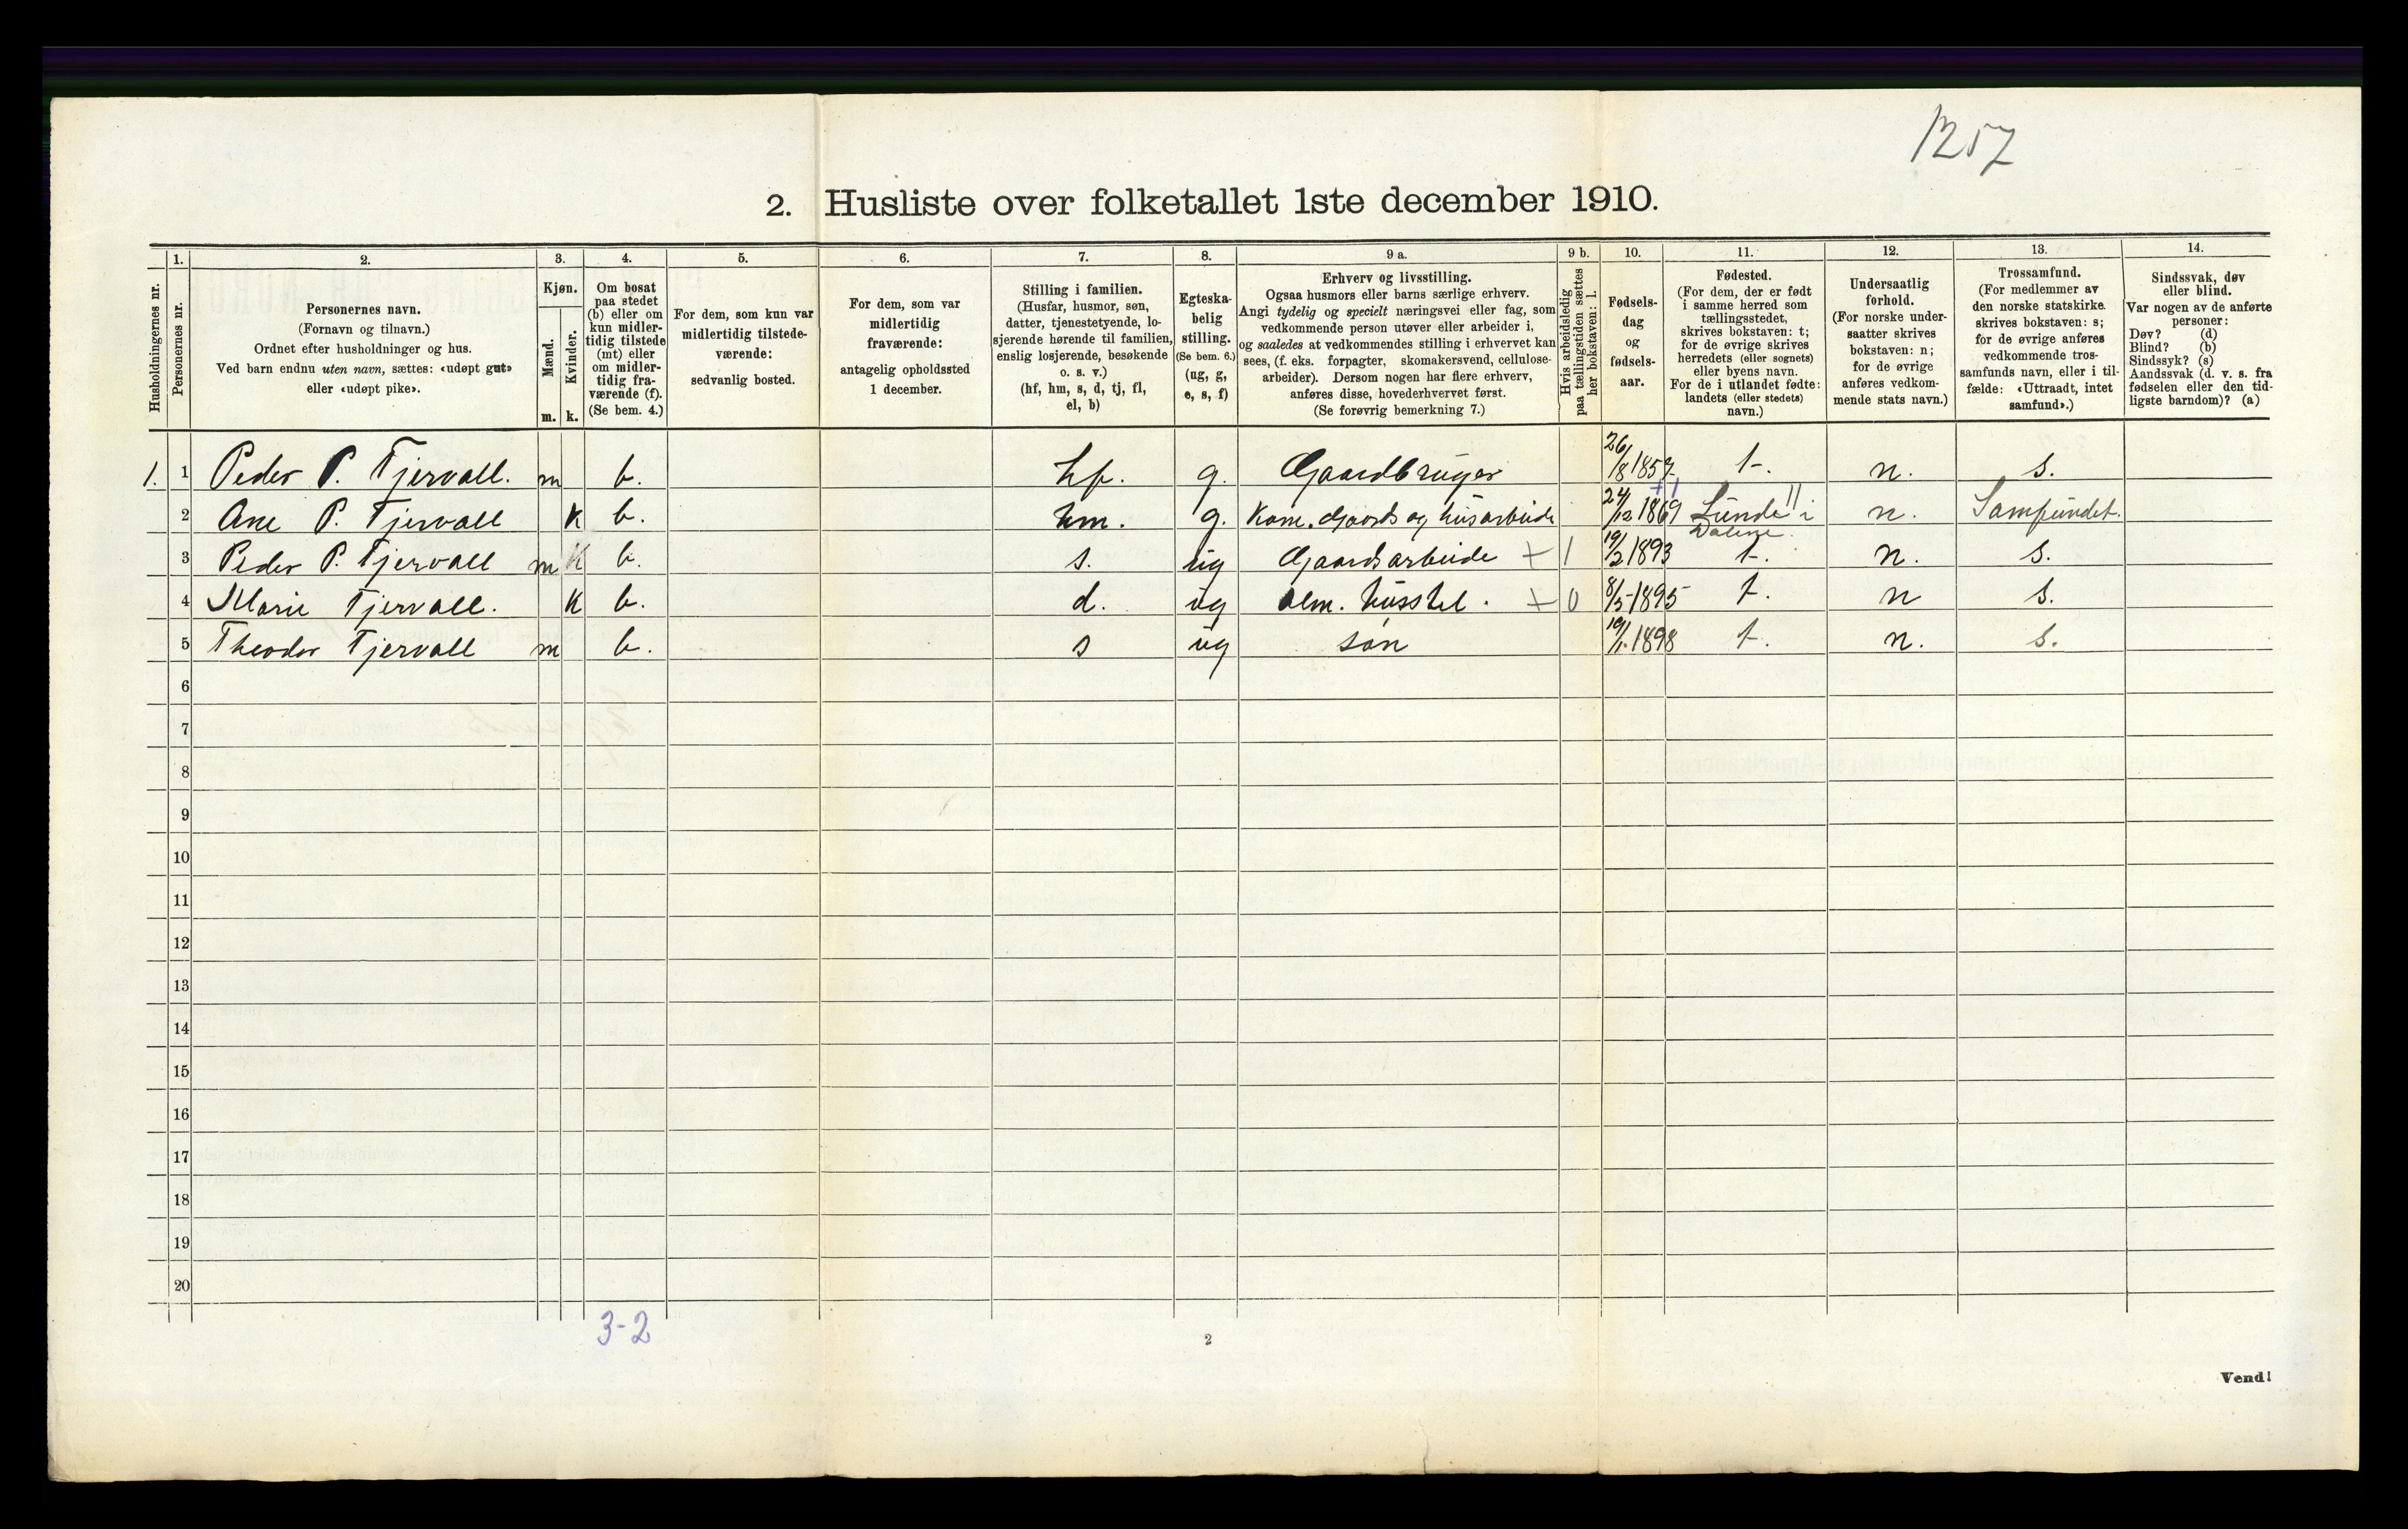 1257
2. Husliste over folketallet 1ste december 1910.
Husholdningernes nr.
1.
Personernes nr.
2.
Personernes navn.
(Fornavn og tilnavn.)
Ordnet efter husholdninger og hus.
Ved barn endnu uten navn, sættes: «udøpt gut»
eller «udøpt pike».
3.
Kjøn.
Mænd.
Kvinder.
m. k.
4.
Om bosat
paa stedet
(b) eller om
kun midler-
tidig tilstede
(mt) eller
om midler-
tidig fra-
værende (f).
(Se bem. 4.)
5.
For dem, som kun var
midlertidig tilstede-
værende:
sedvanlig bosted.
6.
For dem, som var
midlertidig
fraværende:
antagelig opholdssted
1 december.
7.
Stilling i familien.
(Husfar, husmor, søn,
datter, tjenestetyende, lo-
sjerende hørende til familien,
enslig losjerende, besøkende
o. s. v.)
(hf, hm, s, d, tj, fl,
el, b)
8.
Egteska-
belig
stilling.
(Se bem. 6.)
(ug, g,
e, s, f)
9 a.
Erhverv og livsstilling.
Ogsaa husmors eller barns særlige erhverv.
Angi tydelig og specielt næringsvei eller fag, som
vedkommende person utøver eller arbeider i,
og saaledes at vedkommendes stilling i erhvervet kan
sees, (f. eks. forpagter, skomakersvend, cellulose-
arbeider). Dersom nogen har flere erhverv,
anføres disse, hovederhvervet først.
(Se forøvrig bemerkning 7.)
9 b.
Hvis arbeidsledig
paa tællingstiden sættes
her bokstaven: l.
10.
Fødsels-
dag
og
fødsels-
aar.
11.
Fødested.
(For dem, der er født
i samme herred som
tællingsstedet,
skrives bokstaven: t;
for de øvrige skrives
herredets (eller sognets)
eller byens navn.
For de i utlandet fødte:
landets (eller stedets)
navn.)
12.
Undersaatlig
forhold.
(For norske under-
saatter skrives
bokstaven: n;
for de øvrige
anføres vedkom-
mende stats navn.)
13.
Trossamfund.
(For medlemmer av
den norske statskirke
skrives bokstaven: s;
for de øvrige anføres
vedkommende tros-
samfunds navn, eller i til-
fælde: «Uttraadt, intet
samfund».)
14.
Sindssvak, døv
eller blind.
Var nogen av de anførte
personer:
Døv? (d)
Blind? (b)
Sindssyk? (s)
Aandssvak (d. v. s. fra
fødselen eller den tid-
ligste barndom)? (a)
1. 1 Peder P. Tjervall. m b. hf. g. Gaardbruger 26/8 1857 t. n. s.
2 Ane P. Tjervall K b. hm. g. Kone. Gaards og husarbeide 24/12 1869 Lunde i Dalene. n. Samfundet.
3 Peder P. Tjervall m K b. s. ug Gaardsarbeide + 1 19/2 1893 t. n. s.
4 Marie Tjervall. K b. d. ug alm. husstel. + 0 8/5 1895 t. n s.
5 Theodor Tjervall m b. s ug søn 19/1. 1898 t. n. s.
6
7
8
9
10
11
12
13
14
15
16
17
18
19
20
3-2
2
Vend!